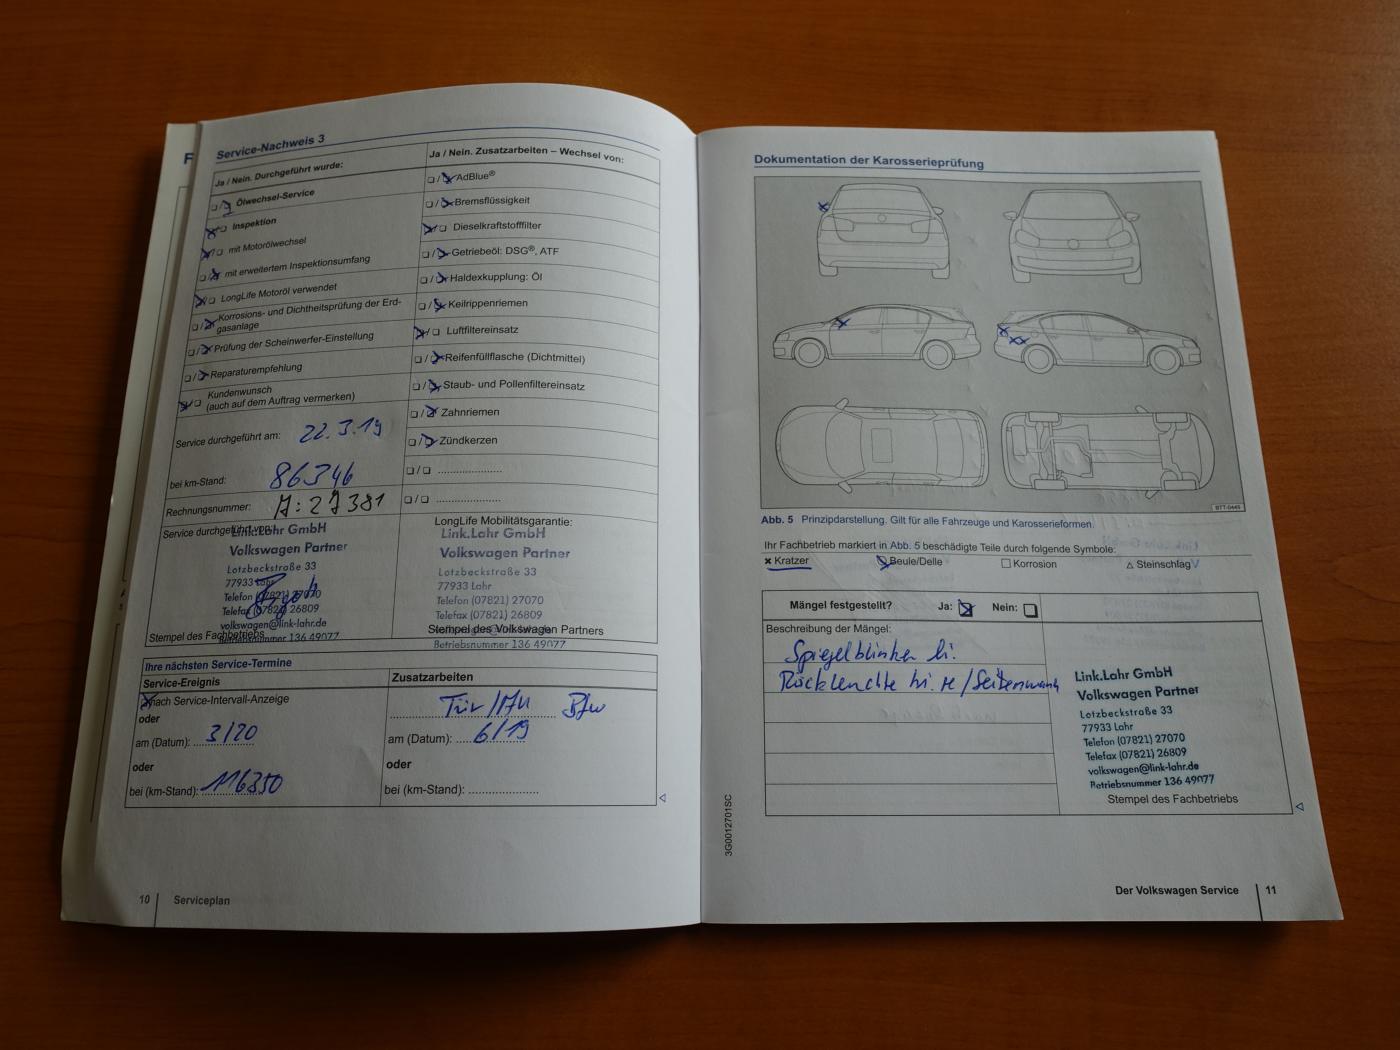 Service-Nachweis 3
Ja / Nein. Durchgeführt wurde:
Ölwechsel-Service
Inspektion
mit Motorölwechsel
mit erweitertem Inspektionsumfang
LongLife Motoröl verwendet
Korrosions- und Dichtheitsprüfung der Erd-
gasanlage
Prüfung der Scheinwerfer-Einstellung
Reparaturempfehlung
Kundenwunsch
(auch auf dem Auftrag vermerken)
Service durchgeführt am: 22.3.19
bei km-Stand: 86346
Rechnungsnummer: A:27381
Ja / Nein. Zusatzarbeiten – Wechsel von:
AdBlue®
Bremsflüssigkeit
Dieselkraftstofffilter
Getriebeöl: DSG®, ATF
Haldexkupplung: Öl
Keilrippenriemen
Luftfiltereinsatz
Reifenfüllflasche (Dichtmittel)
Staub- und Pollenfiltereinsatz
Zahnriemen
Zündkerzen
Service durchgeführt von:
Link.Lahr GmbH
Volkswagen Partner
Lotzbeckstraße 33
77933 Lahr
Telefon (07821) 27070
Telefax (07821) 26809
volkswagen@link-lahr.de
Betriebsnummer 136 49077
Stempel des Fachbetriebs
LongLife Mobilitätsgarantie:
Link.Lahr GmbH
Volkswagen Partner
Lotzbeckstraße 33
77933 Lahr
Telefon (07821) 27070
Telefax (07821) 26809
Stempel des Volkswagen Partners
Betriebsnummer 136 49077
Ihre nächsten Service-Termine
Service-Ereignis
nach Service-Intervall-Anzeige
oder
am (Datum): 3/20
oder
bei (km-Stand): 116350
Zusatzarbeiten
Tüv/AU Bfw
am (Datum): 6/19
oder
bei (km-Stand):
10 Serviceplan
Dokumentation der Karosserieprüfung
BTT-0449
Abb. 5 Prinzipdarstellung. Gilt für alle Fahrzeuge und Karosserieformen.
Ihr Fachbetrieb markiert in Abb. 5 beschädigte Teile durch folgende Symbole:
Kratzer Beule/Delle Korrosion Steinschlag
Mängel festgestellt? Ja: Nein:
Beschreibung der Mängel:
Spiegelblinker li.
Rückleuchte hi. re/Seitenwand
Link.Lahr GmbH
Volkswagen Partner
Lotzbeckstraße 33
77933 Lahr
Telefon (07821) 27070
Telefax (07821) 26809
volkswagen@link-lahr.de
Betriebsnummer 136 49077
Stempel des Fachbetriebs
3G0012701SC
Der Volkswagen Service 11